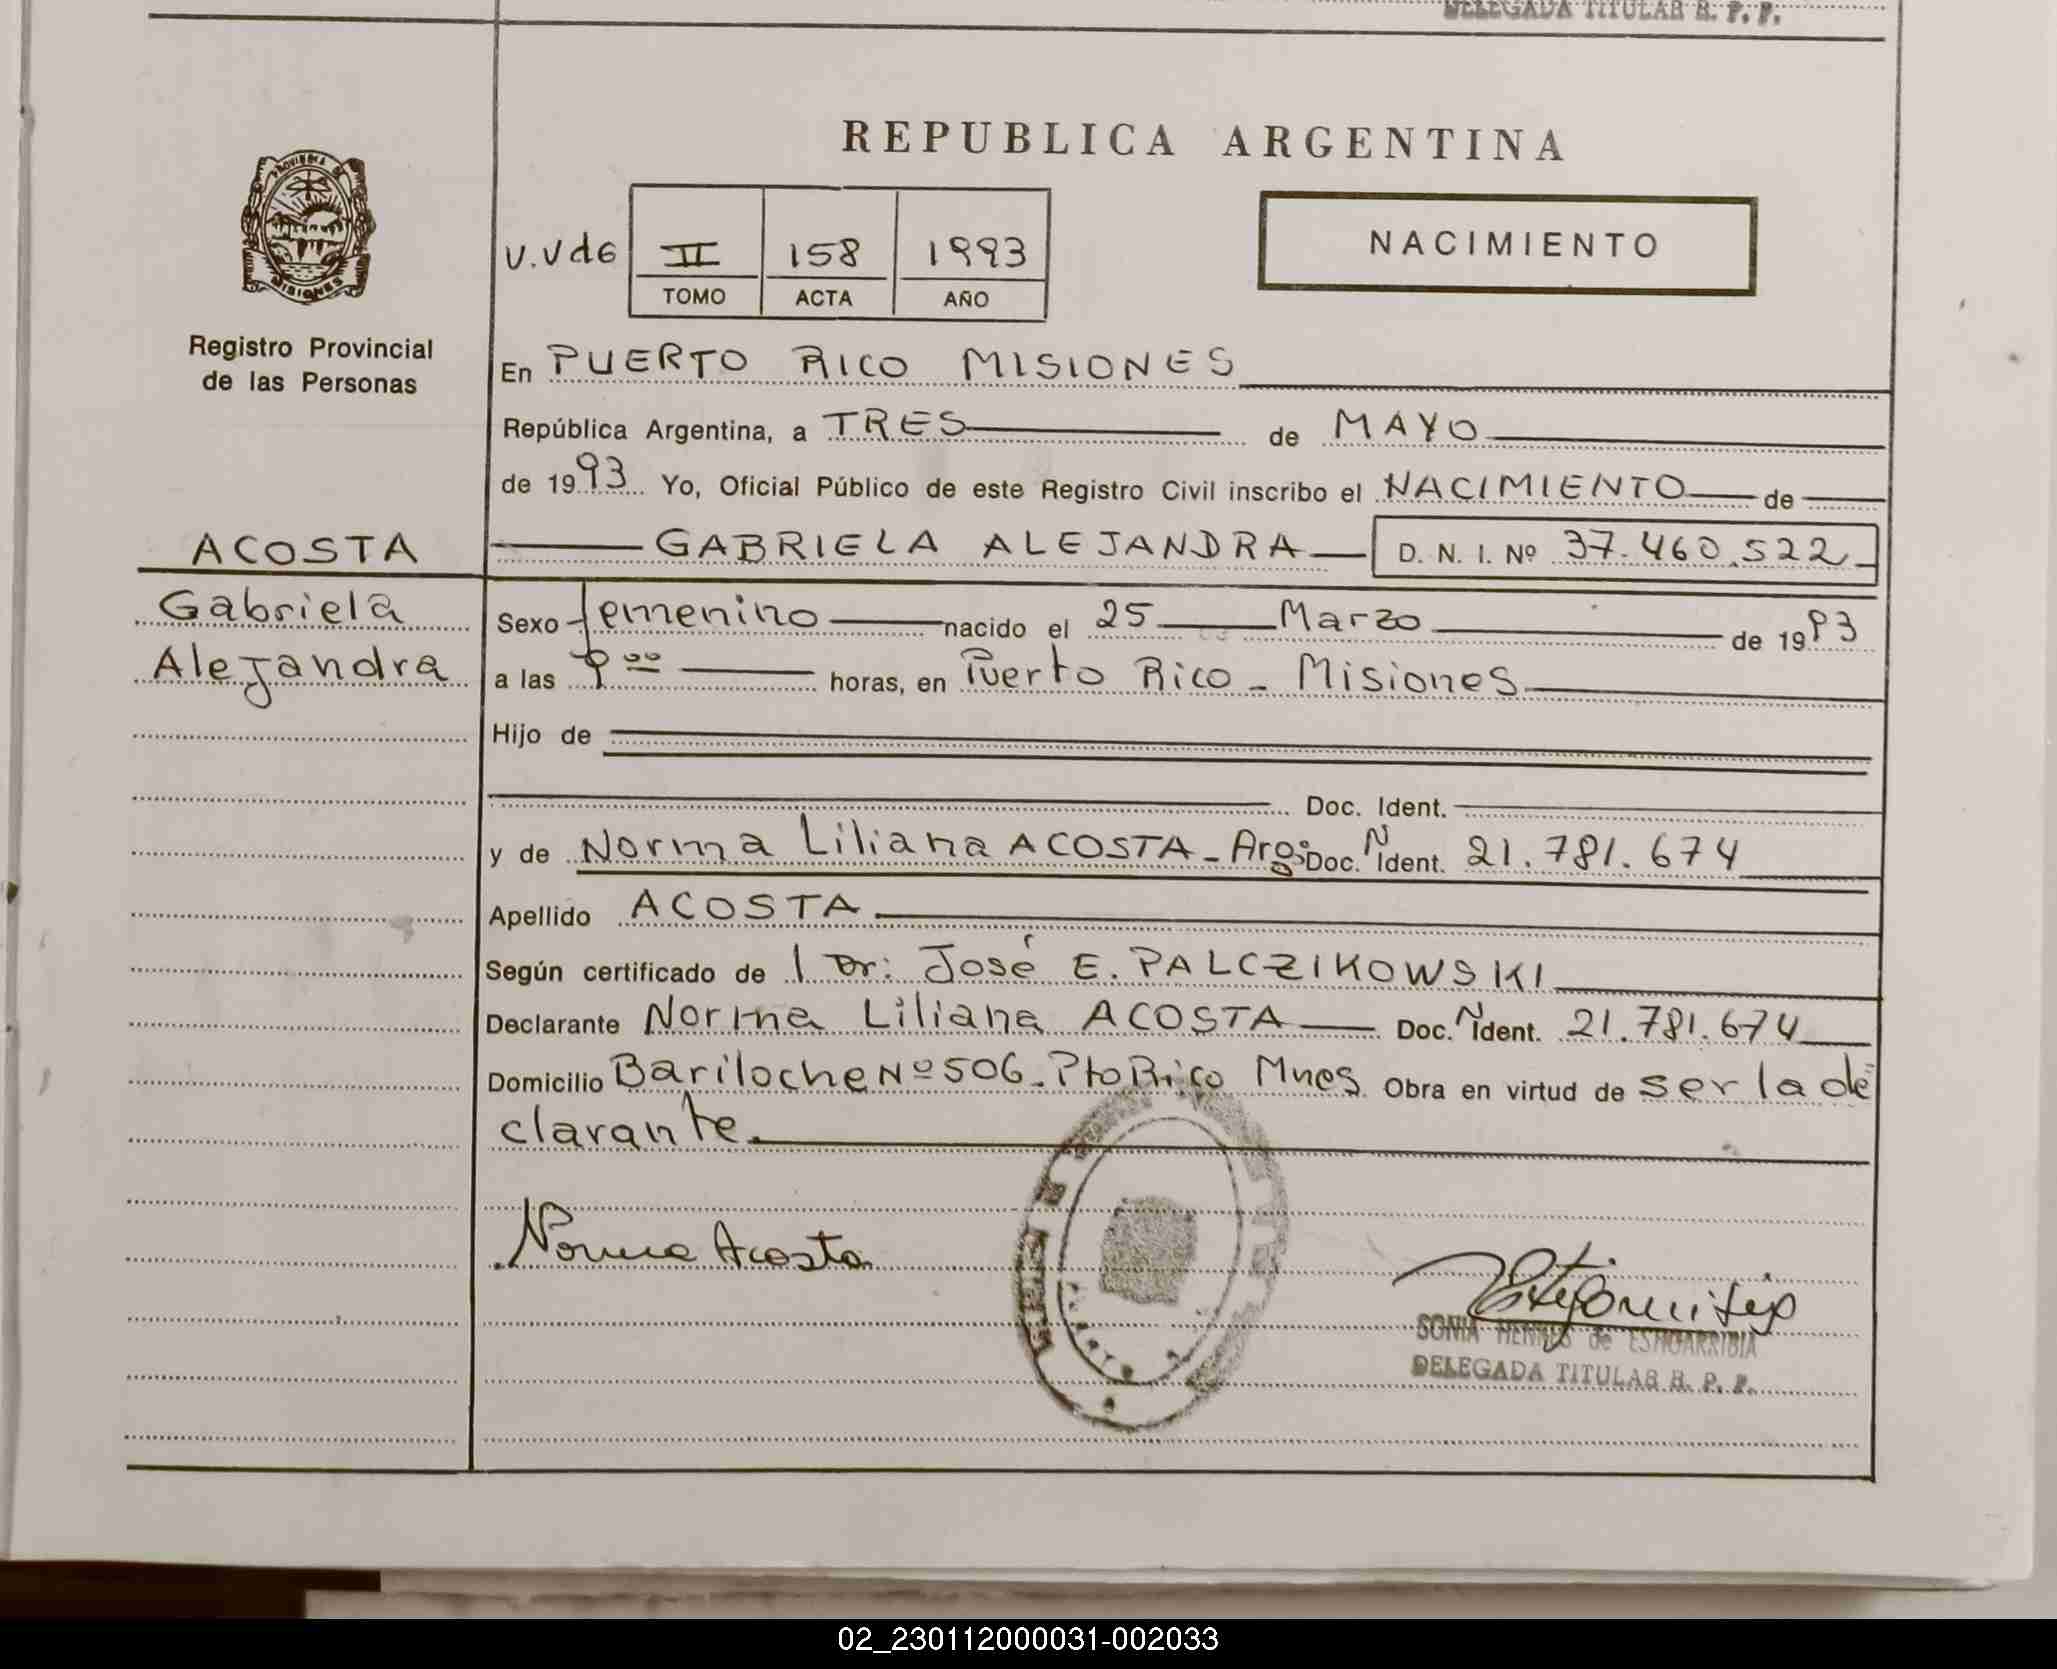 DELEGADA TITULAR R. P. P.
REPUBLICA ARGENTINA
PROVINCIA DE
MISIONES
V.V de
II
158
1993
TOMO
ACTA
AÑO
NACIMIENTO
Registro Provincial
de las Personas
En PUERTO RICO MISIONES
República Argentina, a TRES de MAYO
de 1993 Yo, Oficial Público de este Registro Civil inscribo el NACIMIENTO de
ACOSTA
GABRIELA ALEJANDRA D. N. I. Nº 37.460.522
Gabriela
Alejandra
Sexo femenino nacido el 25 Marzo de 1993
a las 9 00 horas, en Puerto Rico - Misiones
Hijo de
Doc. Ident.
y de Norma Liliana ACOSTA - Arg. Doc. N Ident. 21.781.674
Apellido ACOSTA
Según certificado de l Dr: José E. PALCZIKOWSKI
Declarante Norma Liliana ACOSTA Doc. N Ident. 21.781.674
Domicilio Bariloche Nº 506. Pto Rico Mnes Obra en virtud de ser la de
clarante.
Norma Acosta
SONIA de
DELEGADA TITULAR R. P. P.
02_230112000031-002033